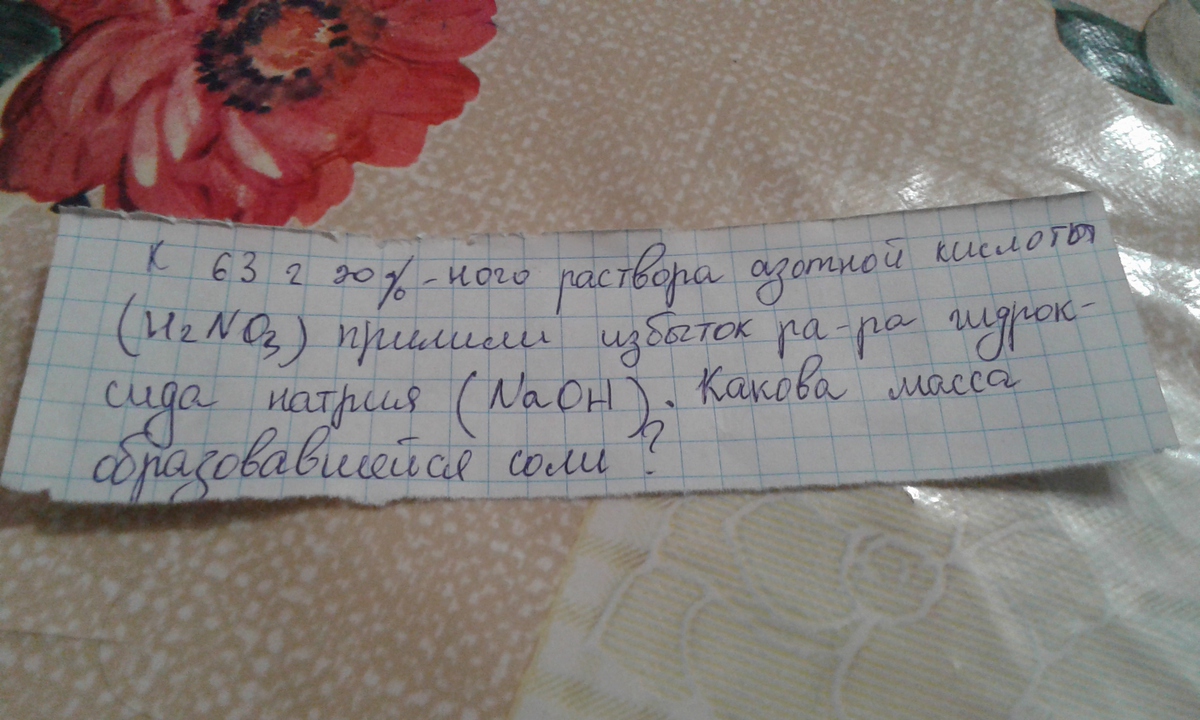 К 63 г 20%-ного раствора азотной кислоты
(H2NO3) прилили избыток ра-ра гидрок-
сида натрия (NaOH). Какова масса
образовавшейся соли?